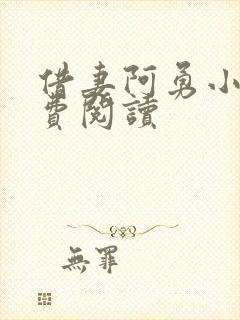 借妻阿勇小
費閱讀
無罪